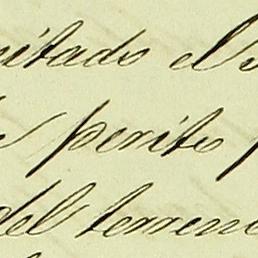 itado el
perito
del terren